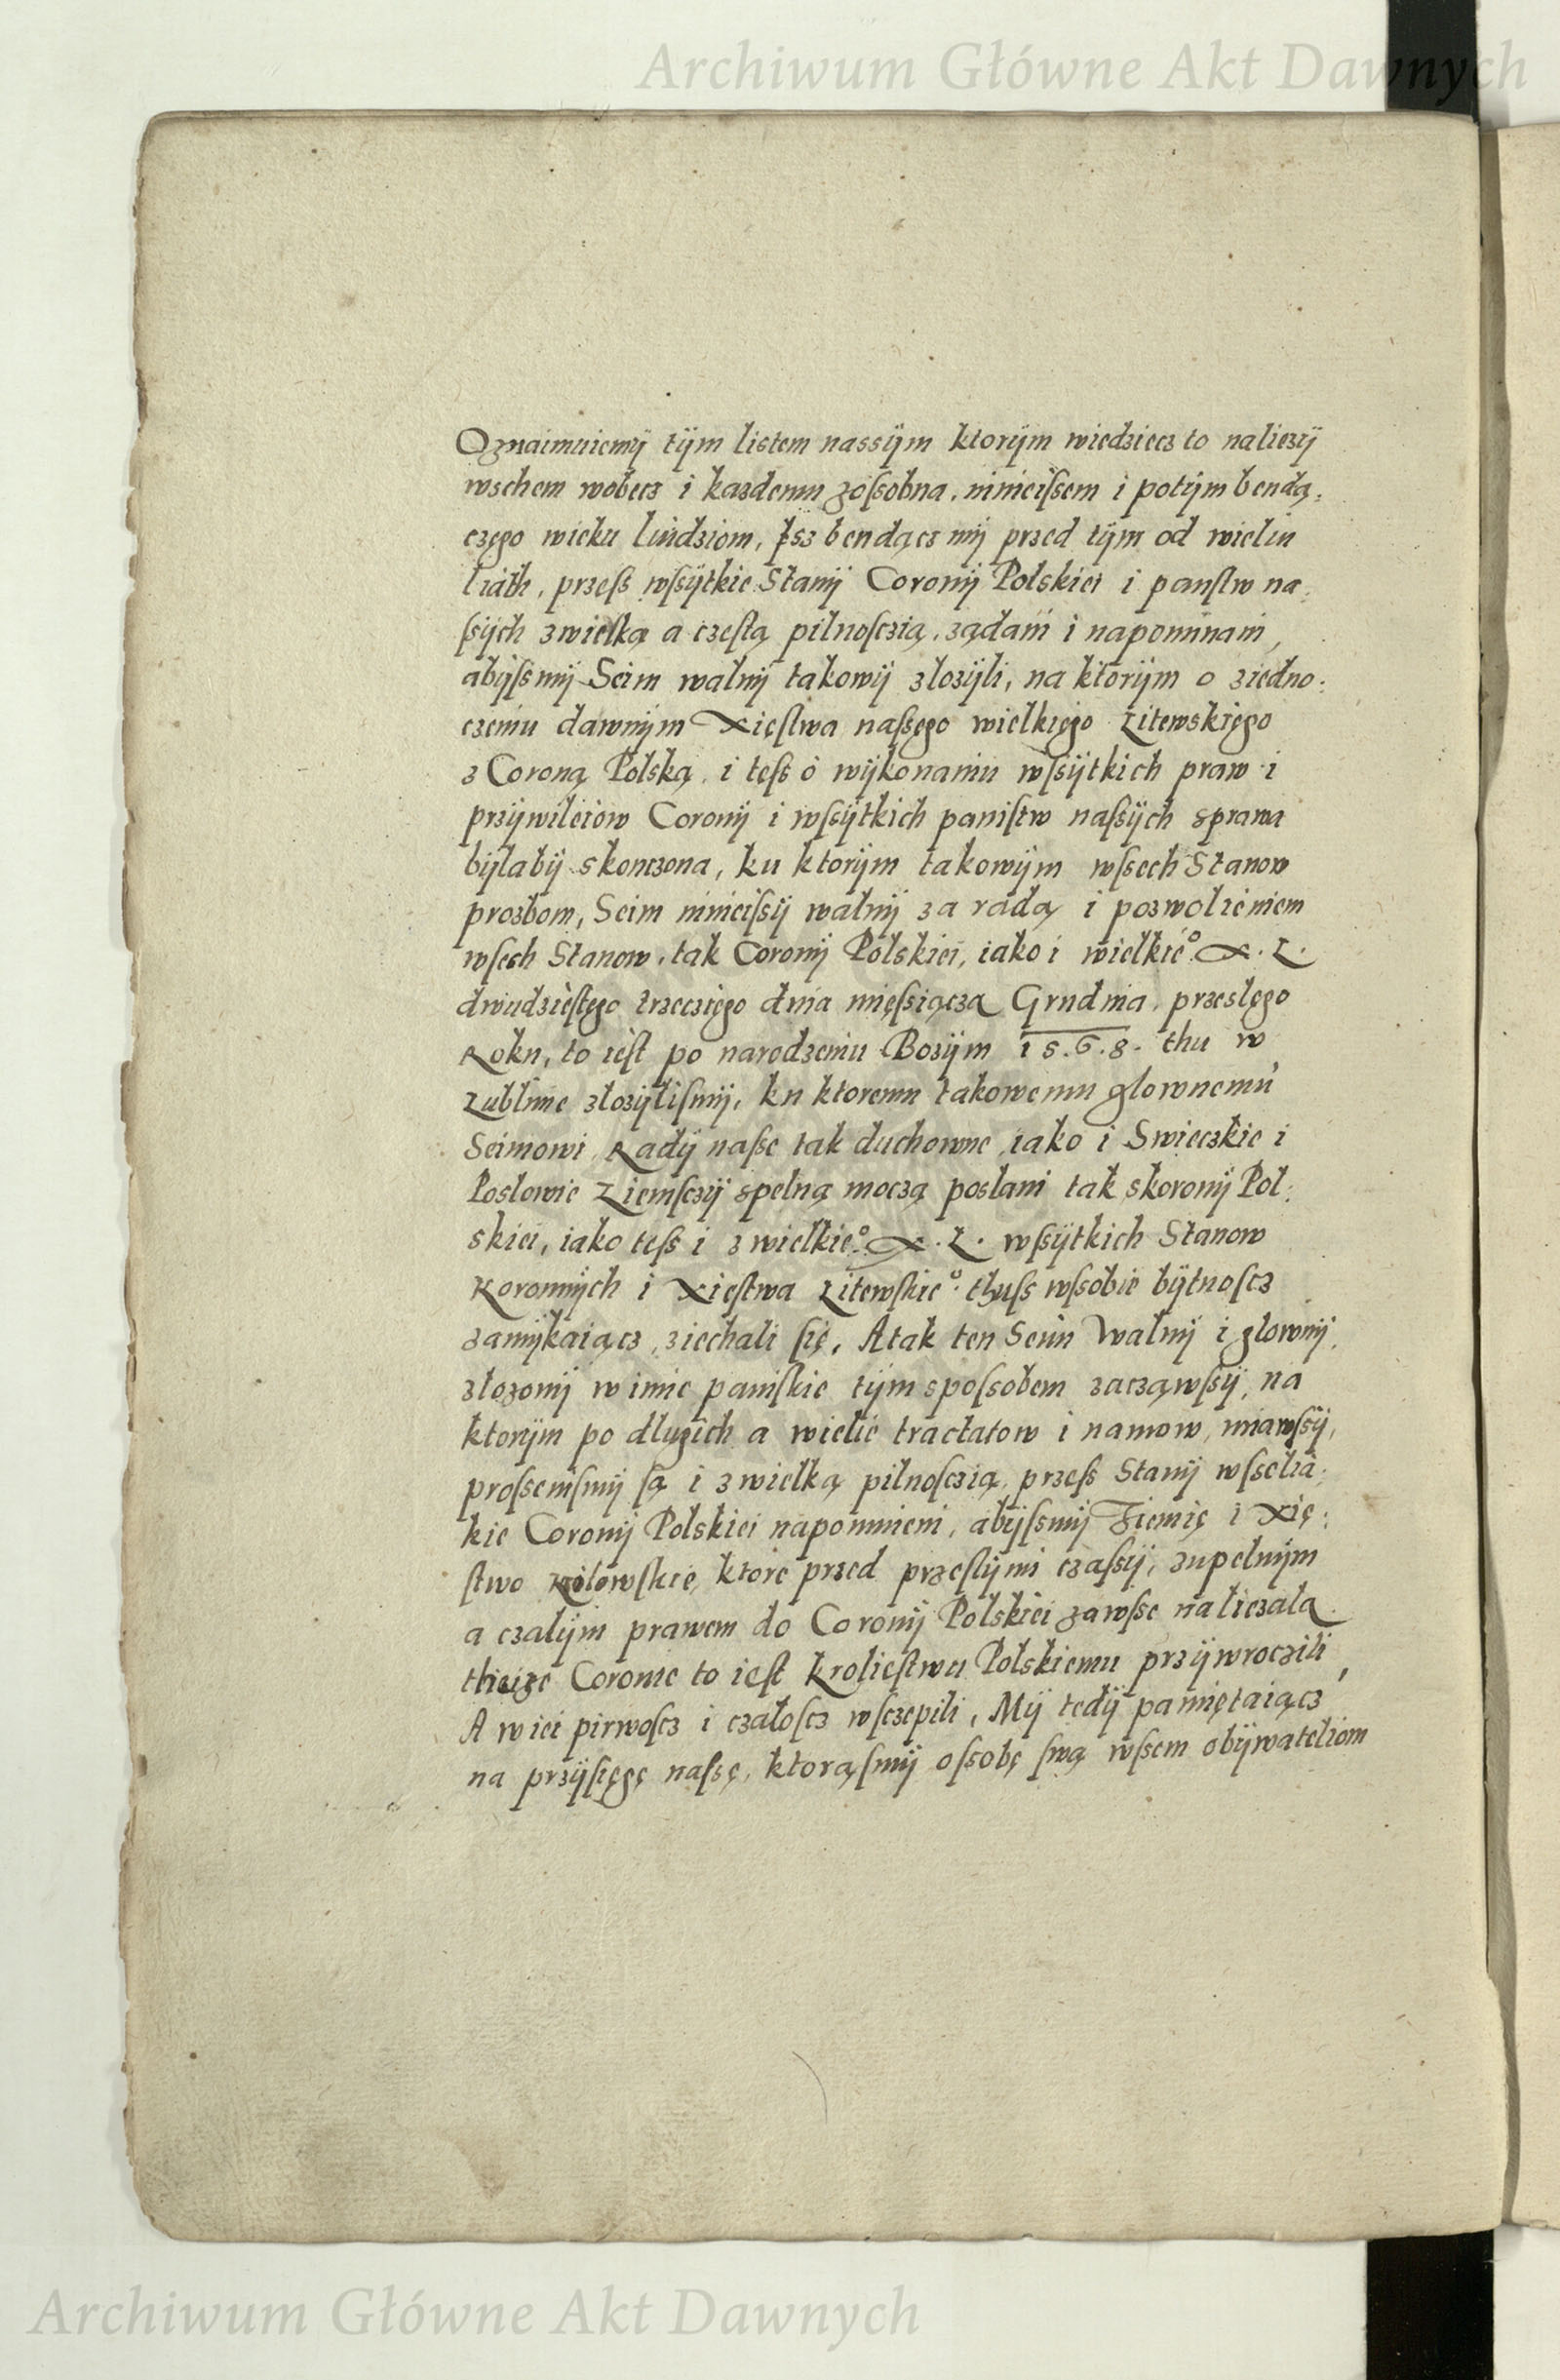 Archiwum Główne Akt Dawnych
Oznaimuiemÿ tÿm listem nassÿm ktorÿm wiedziecz to naliezÿ
wschem wobecz i kazdemu zoſsobna, ninieiſsem i potÿm bendą:
częgo wieku liudziom, Isz bendącz mÿ przed tÿm od wieliu
liath, przeſs wſsÿtkie Stanÿ Coronÿ Polskiei i panſtw na:
ſsÿch zwielką a czeſtą pilnoſczią, ządani i napominani,
abÿſsmÿ Seim walnÿ takowÿ zlozÿli, na ktorÿm o ziedno:
czeniu dawnÿm Xięſtwa naſsęgo wielkięgo Litewskięgo
z Coroną Polską, i teſs o wÿkonaniu wſsÿtkich praw i
przÿwileiow Coronÿ i wſsÿtkich paniſtw naſsÿch sprawa
bÿlabÿ skonczona, ku ktorÿm takowÿm wſsech Stanow
prozbom, Seim ninieiſsÿ walnÿ za radą i pozwolieniem
wſsech Stanow, tak Coronÿ Polskiei, iako i wielkie° X. L.
dwudzieſtęgo trzeczięgo dnia mięſsiącza Grudnia, przeslęgo
Roku, to ieſt po narodzeniu Bozÿm 15.6.8. thu w
Lublinie zlozÿliſmÿ, ku ktoremu takowemu glownemu
Seimowi Radÿ naſse tak duchowne iako i Swieczkie i
Poslowie Ziemſczÿ spelną moczą poslani tak skoronÿ Pol:
skiei, iako teſs i z wielkie° X. L. wſsÿtkich Stanow
Koronnÿch i Xięſtwa Litewſkie° thuſs wſsobie bÿtnoſcz
zamÿkaiącz, ziechali ſię, A tak ten Seim Walnÿ i glownÿ,
zlozonÿ w imie paniſkie tÿm spoſsobem zacząwſsÿ, na
ktorÿm po dlugich a wielie tractatow i namow, miawſsÿ,
proſseniſmÿ ſą i z wielką pilnoſczią przeſs Stanÿ wſselia:
kie Coronÿ Polskiei napomnieni, abÿſsmÿ Ziemię i Xię:
ſtwo ktore przed przeſlÿmi czaſsÿ, zupelnÿm
a czalÿm prawem do Coronÿ Polskiei zawſse naliezala
theize Coronie to ieſt Krolieſtwu Polskiemu przÿwroczili,
A w iei pirwoſcz i czaloſcz wſczepili, Mÿ tedÿ pamiętaiącz
na przÿſięgę naſsę, ktorąſmÿ oſsobę ſwą wſsem obÿwateliom
Archiwum Główne Akt Dawnych